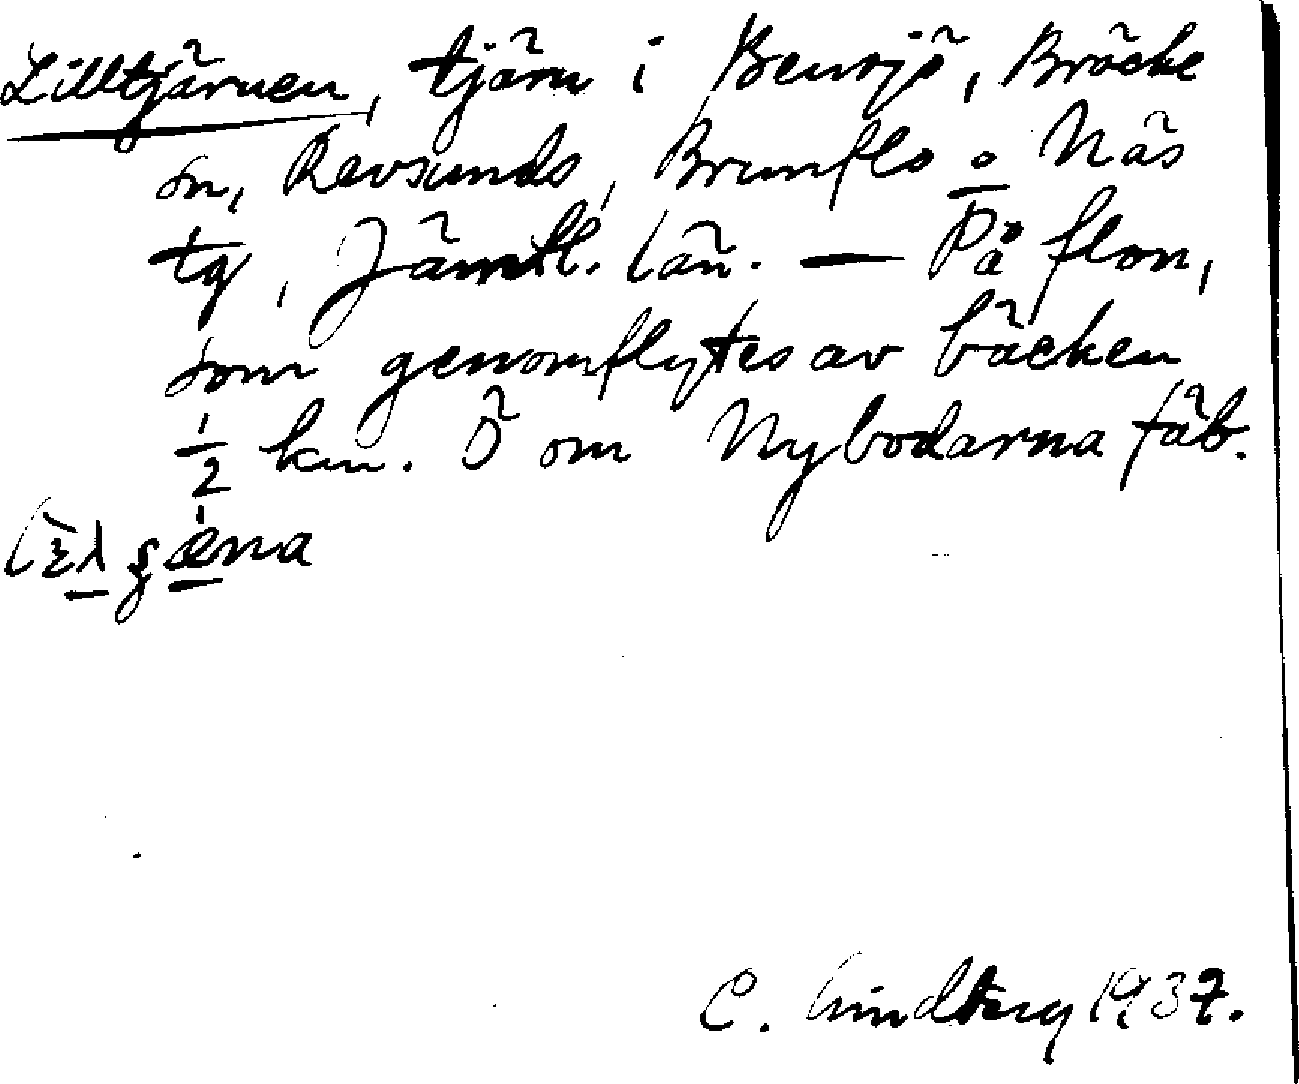 Lilltjärnen, tjärn i Bensjö, Bräcke
sn, Revsunds, Brunflo o Näs
tg, Jämtl. län. — På flon,
som genomflytes av bäcken
½ km. Ö om Nybodarna fäb.
C. Lindberg 1937.